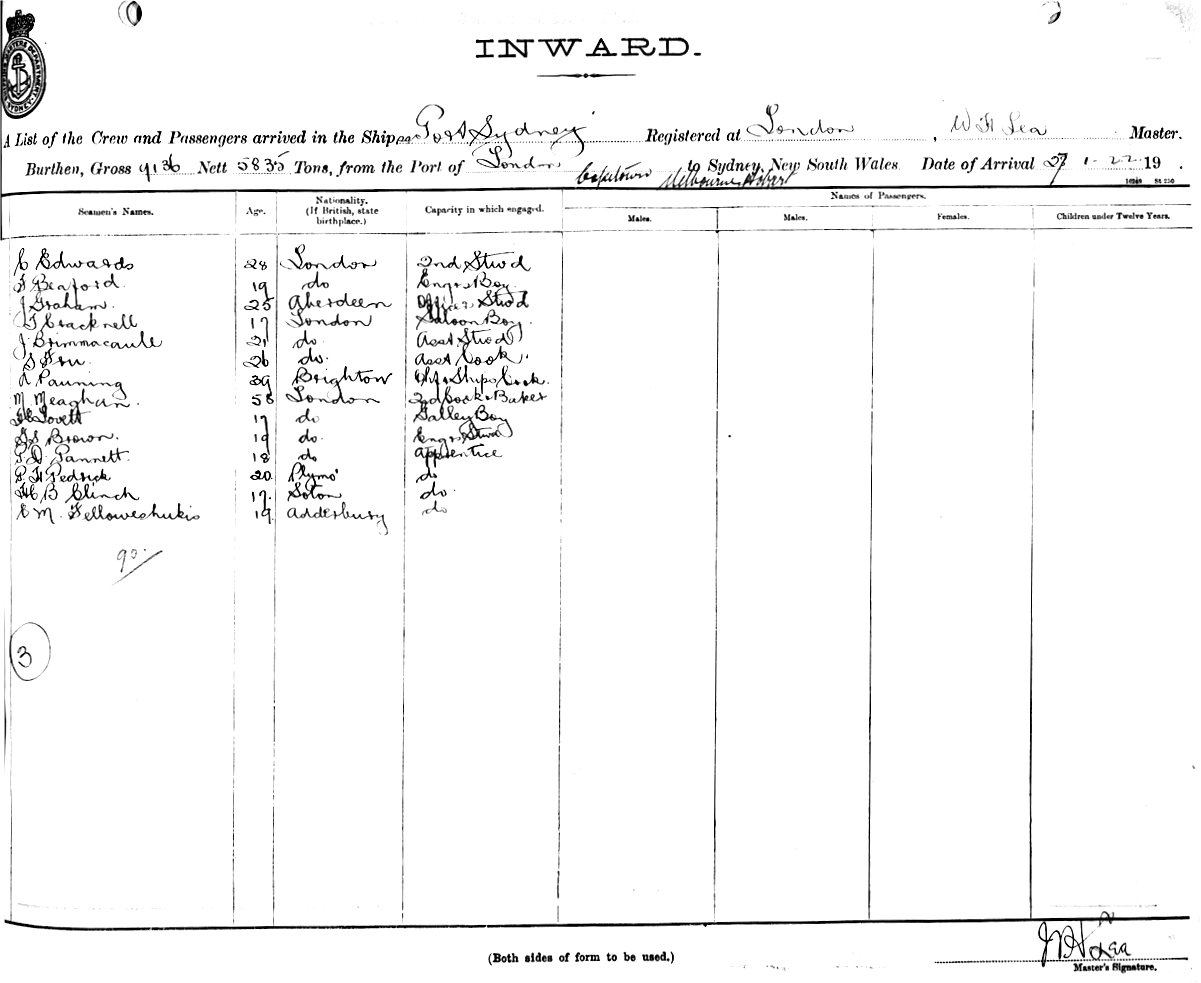 SHIPPING MASTERS DEPARTMENT SYDNEY
INWARD.
A List of the Crew and Passengers arrived in the Ship Port Sydney Registered at London, W H Lea Master.
Burthen, Gross 9136 Nett 5835 Tons, from the Port of London Capetown Melbourne Hobart to Sydney, New South Wales Date of Arrival 27 1-22 19
Seamen's Names. Age. Nationality. (If British, state birthplace.) Capacity in which engaged. Names of Passengers.
Males. Males. Females. Children under Twelve Years.
C Edwards 28 London 2nd Stwd
Benford. 19 do Engrs Boy.
J Graham. 25 Aberdeen Officer Stwd
Cracknell 17 London Saloon Boy.
J Brimmacaule 21 do. Asst Stwd
26 do. Asst Cook.
Panning 39 Brighton Ships Cook.
M Meaghan. 58 London 2nd Cook & Baker
Lovett 17 do Galley Boy
Brown. 19 do. Engrs Stwd
P D Pannett. 18 do Apprentice
P H Pedrick 20 Plymo do
H C B Clinch 17. Soton do.
E M. 19 Adderbury do
90.
3
(Both sides of form to be used.)
Lea
Master's Signature.